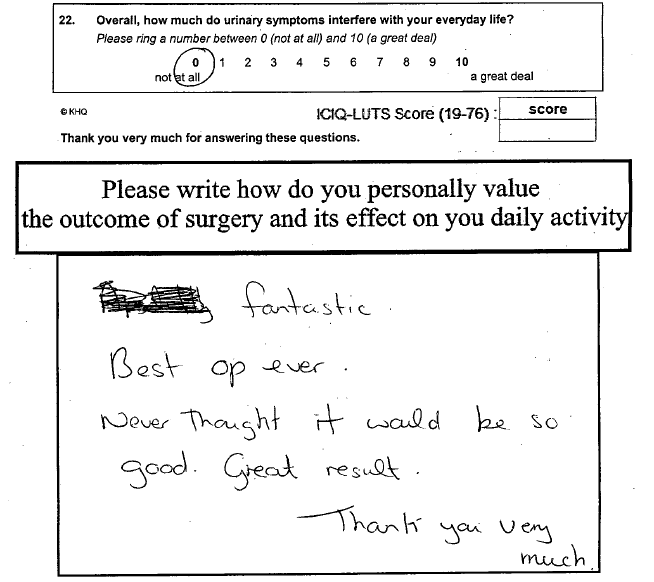 22. Overall, how much do urinary symptoms interfere with your everyday life?
Please ring a number between 0 (not at all) and 10 (a great deal)
0 1 2 3 4 5 6 7 8 9 10
not at all a great deal
© KHQ
ICIQ-LUTS Score (19-76) : score
Thank you very much for answering these questions.
Please write how do you personally value
the outcome of surgery and its effect on you daily activity
fantastic.
Best op ever.
Never thought it would be so
good. Great result.
Thank you very
much.